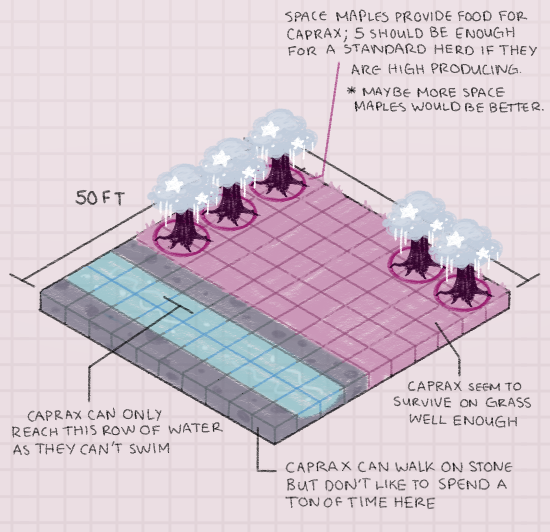 SPACE MAPLES PROVIDE FOOD FOR
CAPRAX; 5 SHOULD BE ENOUGH
FOR A STANDARD HERD IF THEY
ARE HIGH PRODUCING.
* MAYBE MORE SPACE
MAPLES WOULD BE BETTER.
50 FT
CAPRAX SEEM TO
SURVIVE ON GRASS
WELL ENOUGH
CAPRAX CAN ONLY
REACH THIS ROW OF WATER
AS THEY CAN'T SWIM
CAPRAX CAN WALK ON STONE
BUT DON'T LIKE TO SPEND A
TON OF TIME HERE